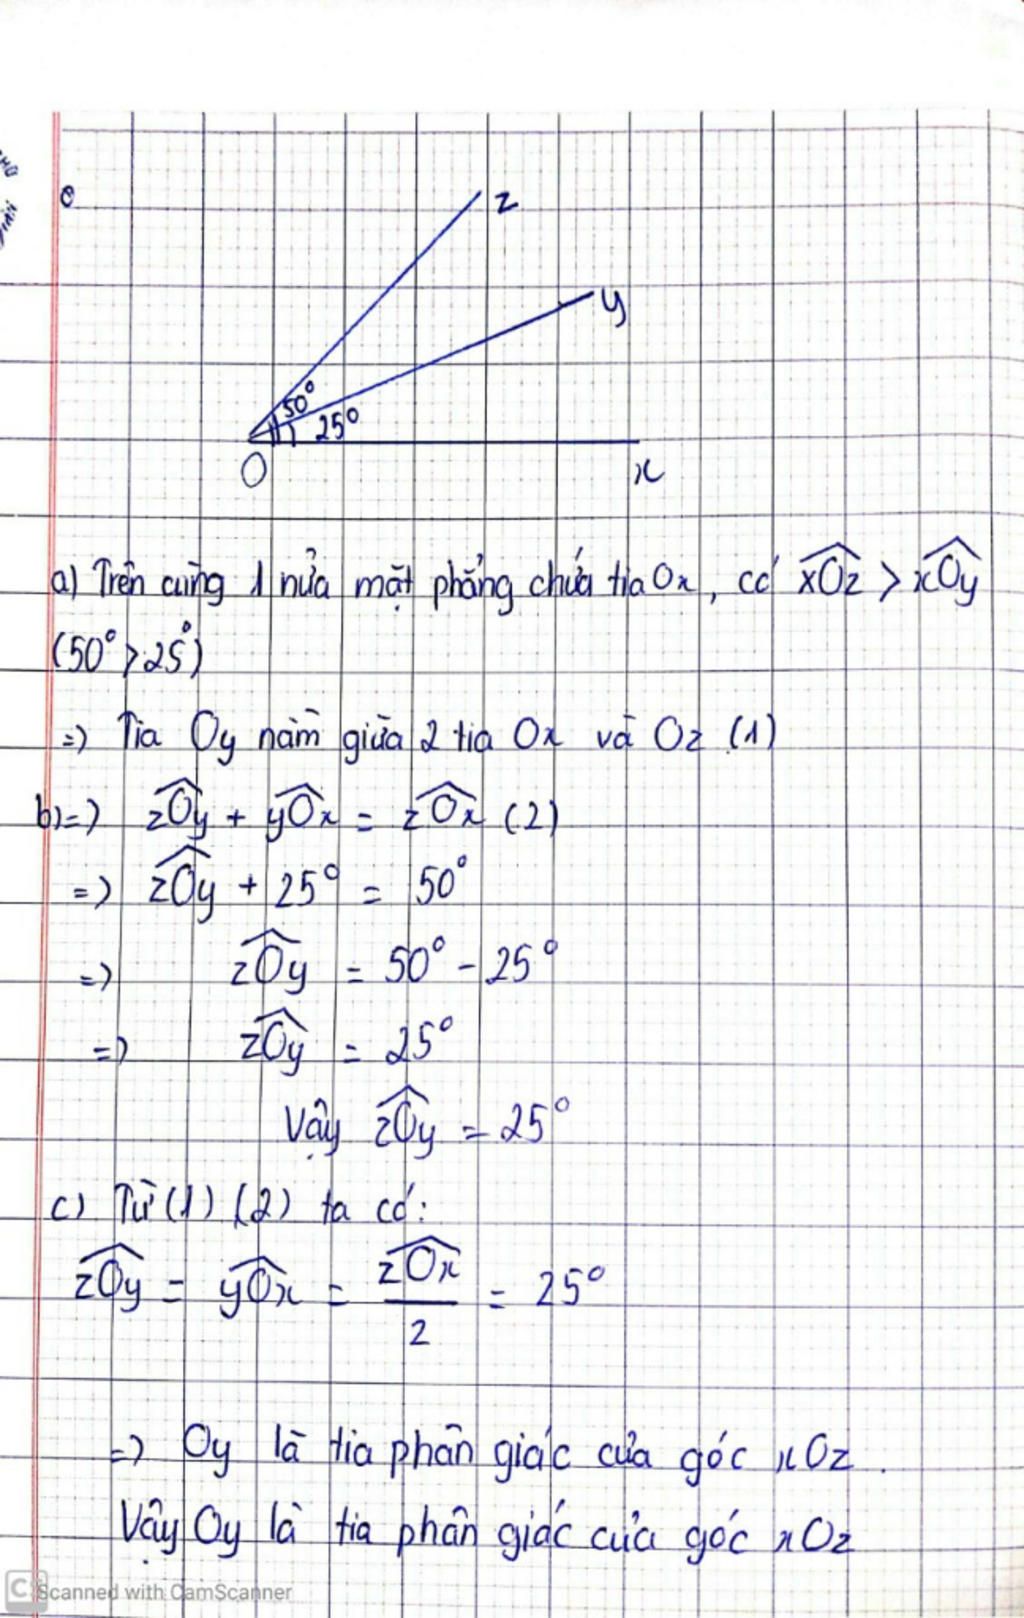 z
y
50°
25°
O
x
a) Trên cùng 1 nửa mặt phẳng chứa tia Ox, có xOz > xOy
(50° > 25°)
=) Tia Oy nằm giữa 2 tia Ox và Oz (1)
b) =) zOy + yOx = zOx (2)
=) zOy + 25° = 50°
=) zOy = 50° - 25°
=) zOy = 25°
Vậy zOy = 25°
c) Từ (1) (2) ta có:
zOy = yOx = zOx / 2 = 25°
=) Oy là tia phân giác của góc xOz.
Vậy Oy là tia phân giác của góc xOz
Scanned with CamScanner